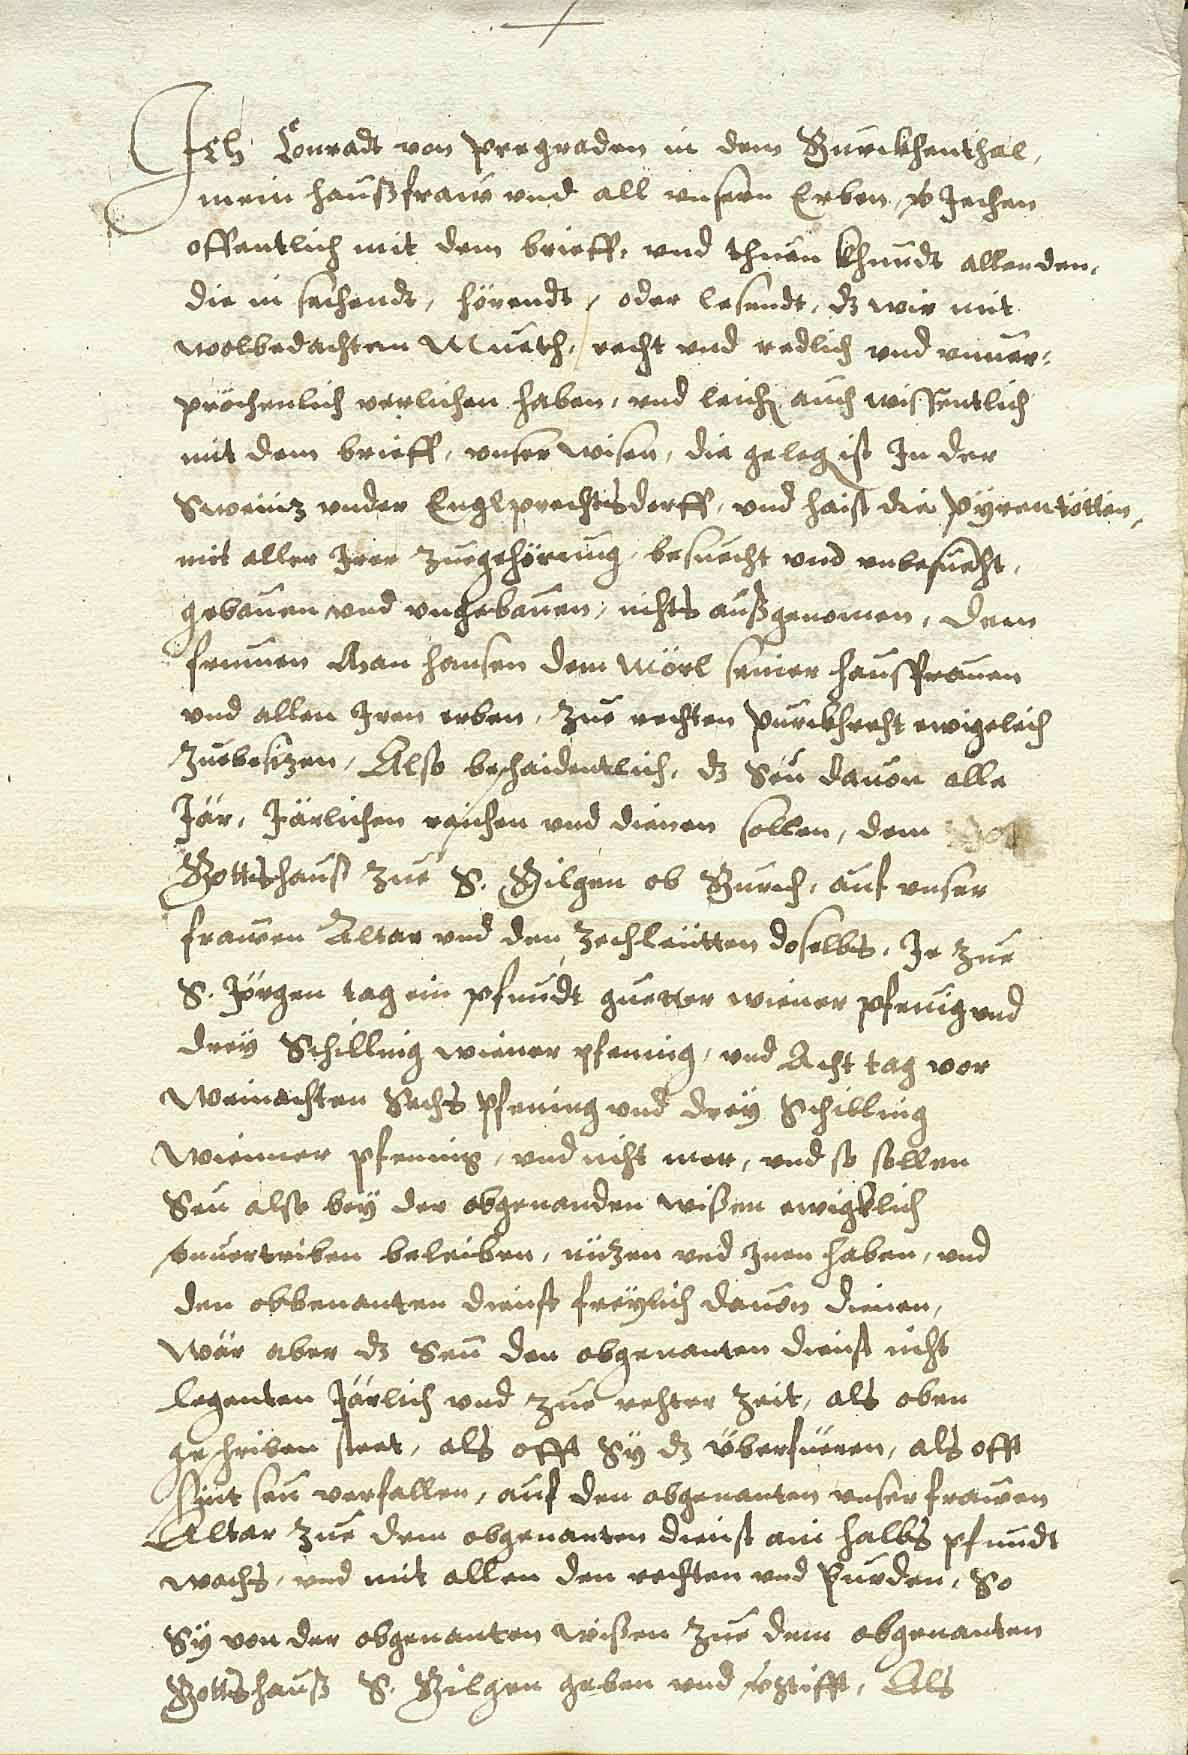 Ich Conradt von Pregraden in dem Gurckhenthal,
mein haußfraw vnd all vnsern Erben, v̈Jechen
offentlich mit dem brieff, vnd thuen khundt allen den,
die in sechendt, hörendt, oder lesendt, dz wir mit
wolbedachtem Mueth, recht vnd redlich vnd vnuer=
prochenlich verlichen haben, vnd leich auch wissentlich
mit dem brieff, vnser wisen, die geleg ist In der
Sweiniz vnder Englprechtsdorff, vnd haist die
mit aller Irer zuegehörung, besuecht vnd vnbesuecht,
gebauen vnd vngebauen, nichts außgenomen, dem
frumen Man hansen dem Mörl seiner hausfrauen
vnd allen Iren erben, zue rechten Purckhrecht ewigclich
zuebesizen, Also beschaidentlich, dz Seu dauon alle
Jar, Järlichen raichen vnd dienen sollen, dem
Gottshauß zue S. Gilgen ob Gurch, auf vnser
frawen Altar vnd den zechleütten doselbs, Je zue
S. Jörgen tag ein pfundt guetter wiener pfenig vnd
drey Schilling wiener pfening, vnd Acht tag vor
Weinachten Sechs pfening vnd drey Schilling
Wienner pfening, vnd nicht mer, vnd so sollen
Seu also bey der obgenanden wißen ewigklich
vnuertriben beleiben, nüzen vnd Jnen haben, vnd
den obbenanten dienst freÿlich dauon dienen,
Wär aber dz Seu den obgenanten dienst nicht
legenten Järlich vnd zue rehter zeit, als oben
geschriben steet, als offt Sÿ dz überfüeren, als offt
sint seu verfallen, auf den obgenanten vnser frawen
Altar zue dem obgenanten dienst ain halbs pfundt
wachs, vnd mit allen den rechten vnd Purden, So
Sÿ von der obgenanten wißen zue dem obgenanten
Gottshauß S. Gilgen geben vnd Als